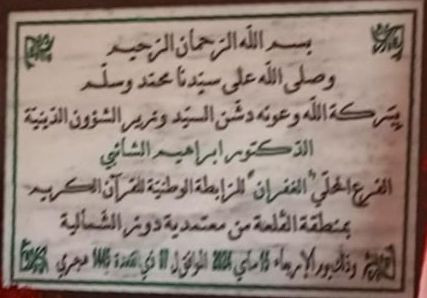 بسم الله الرحمان الرحيم
وصلى الله على سيدنا محمد وسلم
ببركة الله وعونه دشن السيد وزير الشؤون الدينية
الدكتور ابراهيم الشائبي
الفرع المحلي "الغفران" للرابطة الوطنية للقرآن الكريم
بمنطقة القلعة من معتمدية دوز الشمالية
وذلك يوم الإربعاء 15 ماي 2024 الموافق ل 07 ذي القعدة 1445 هجري